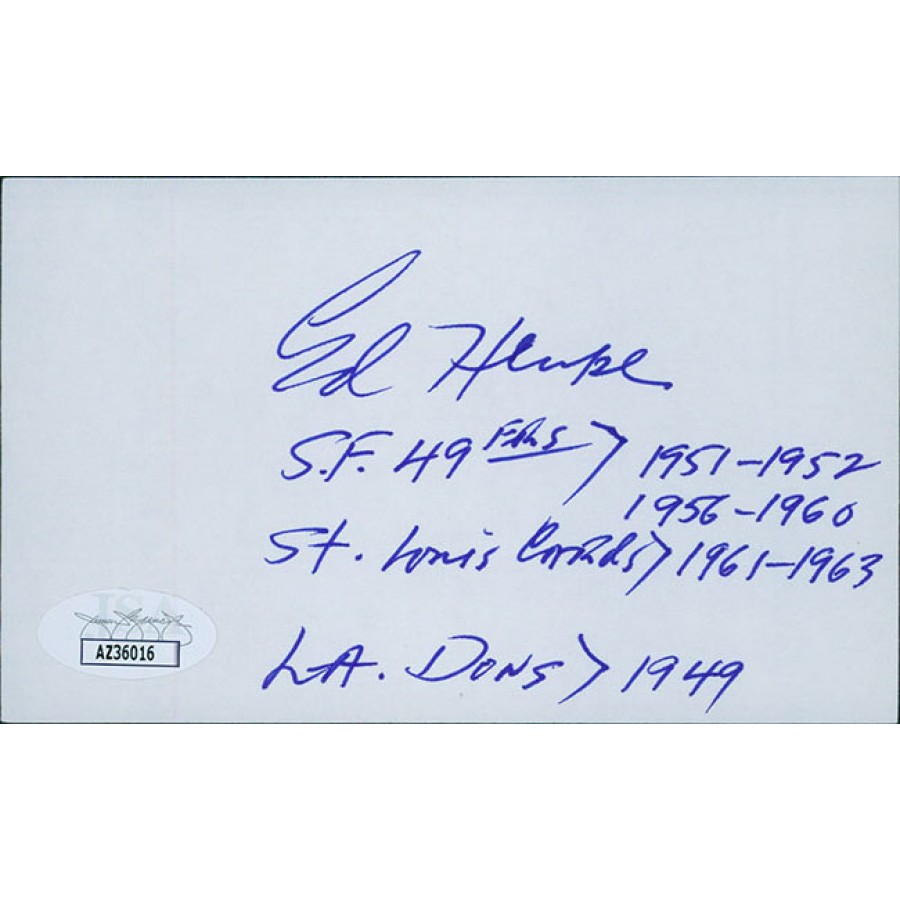 Ed Henke
S.F. 49ERS > 1951-1952
1956-1960
St. Louis Cards > 1961-1963
L.A. Dons > 1949
JSA
AZ36016